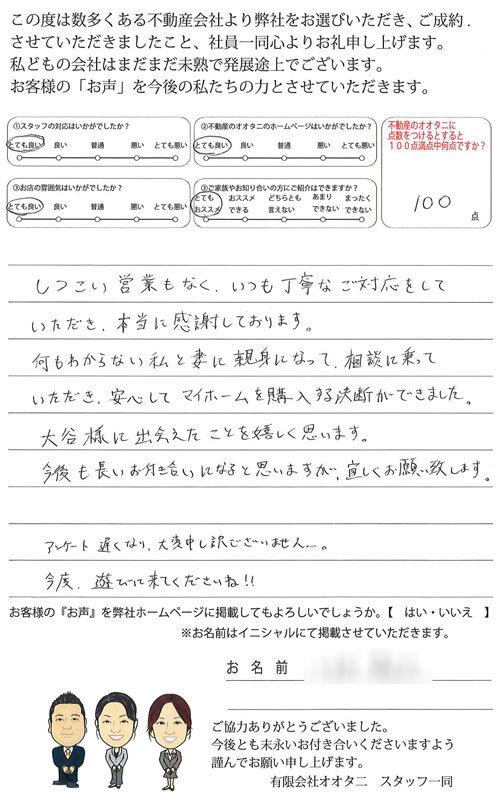 この度は数多くある不動産会社より弊社をお選びいただき、ご成約.
させていただきましたこと、社員一同心よりお礼申し上げます。
私どもの会社はまだまだ未熟で発展途上でございます。
お客様の「お声」を今後の私たちの力とさせていただきます。
①スタッフの対応はいかがでしたか?
とても良い 良い 普通 悪い とても悪い
②不動産のオオタニのホームページはいかがでしたか?
とても良い 良い 普通 悪い とても悪い
③お店の雰囲気はいかがでしたか?
とても良い 良い 普通 悪い とても悪い
③ご家族やお知り合いの方にご紹介はできますか?
とても おススメ どちらとも あまり まったく
おススメ できる 言えない できない できない
不動産のオオタニに
点数をつけるとすると
100点満点中何点ですか?
100
点
しつこい営業もなく、いつも丁寧なご対応をして
いただき、本当に感謝しております。
何もわからない私と妻に親身になって、相談に乗って
いただき、安心してマイホームを購入する決断ができました。
大谷様に出会えたことを嬉しく思います。
今後も長いお付き合いになると思いますが、宜しくお願い致します。
アンケート遅くなり、大変申し訳ございません…。
今度、遊びに来てくださいね!!
お客様の『お声』を弊社ホームページに掲載してもよろしいでしょうか。【 はい・いいえ 】
※お名前はイニシャルにて掲載させていただきます。
お 名 前
ご協力ありがとうございました。
今後とも末永いお付き合いくださいますよう
謹んでお願い申し上げます。
有限会社オオタニ スタッフ一同